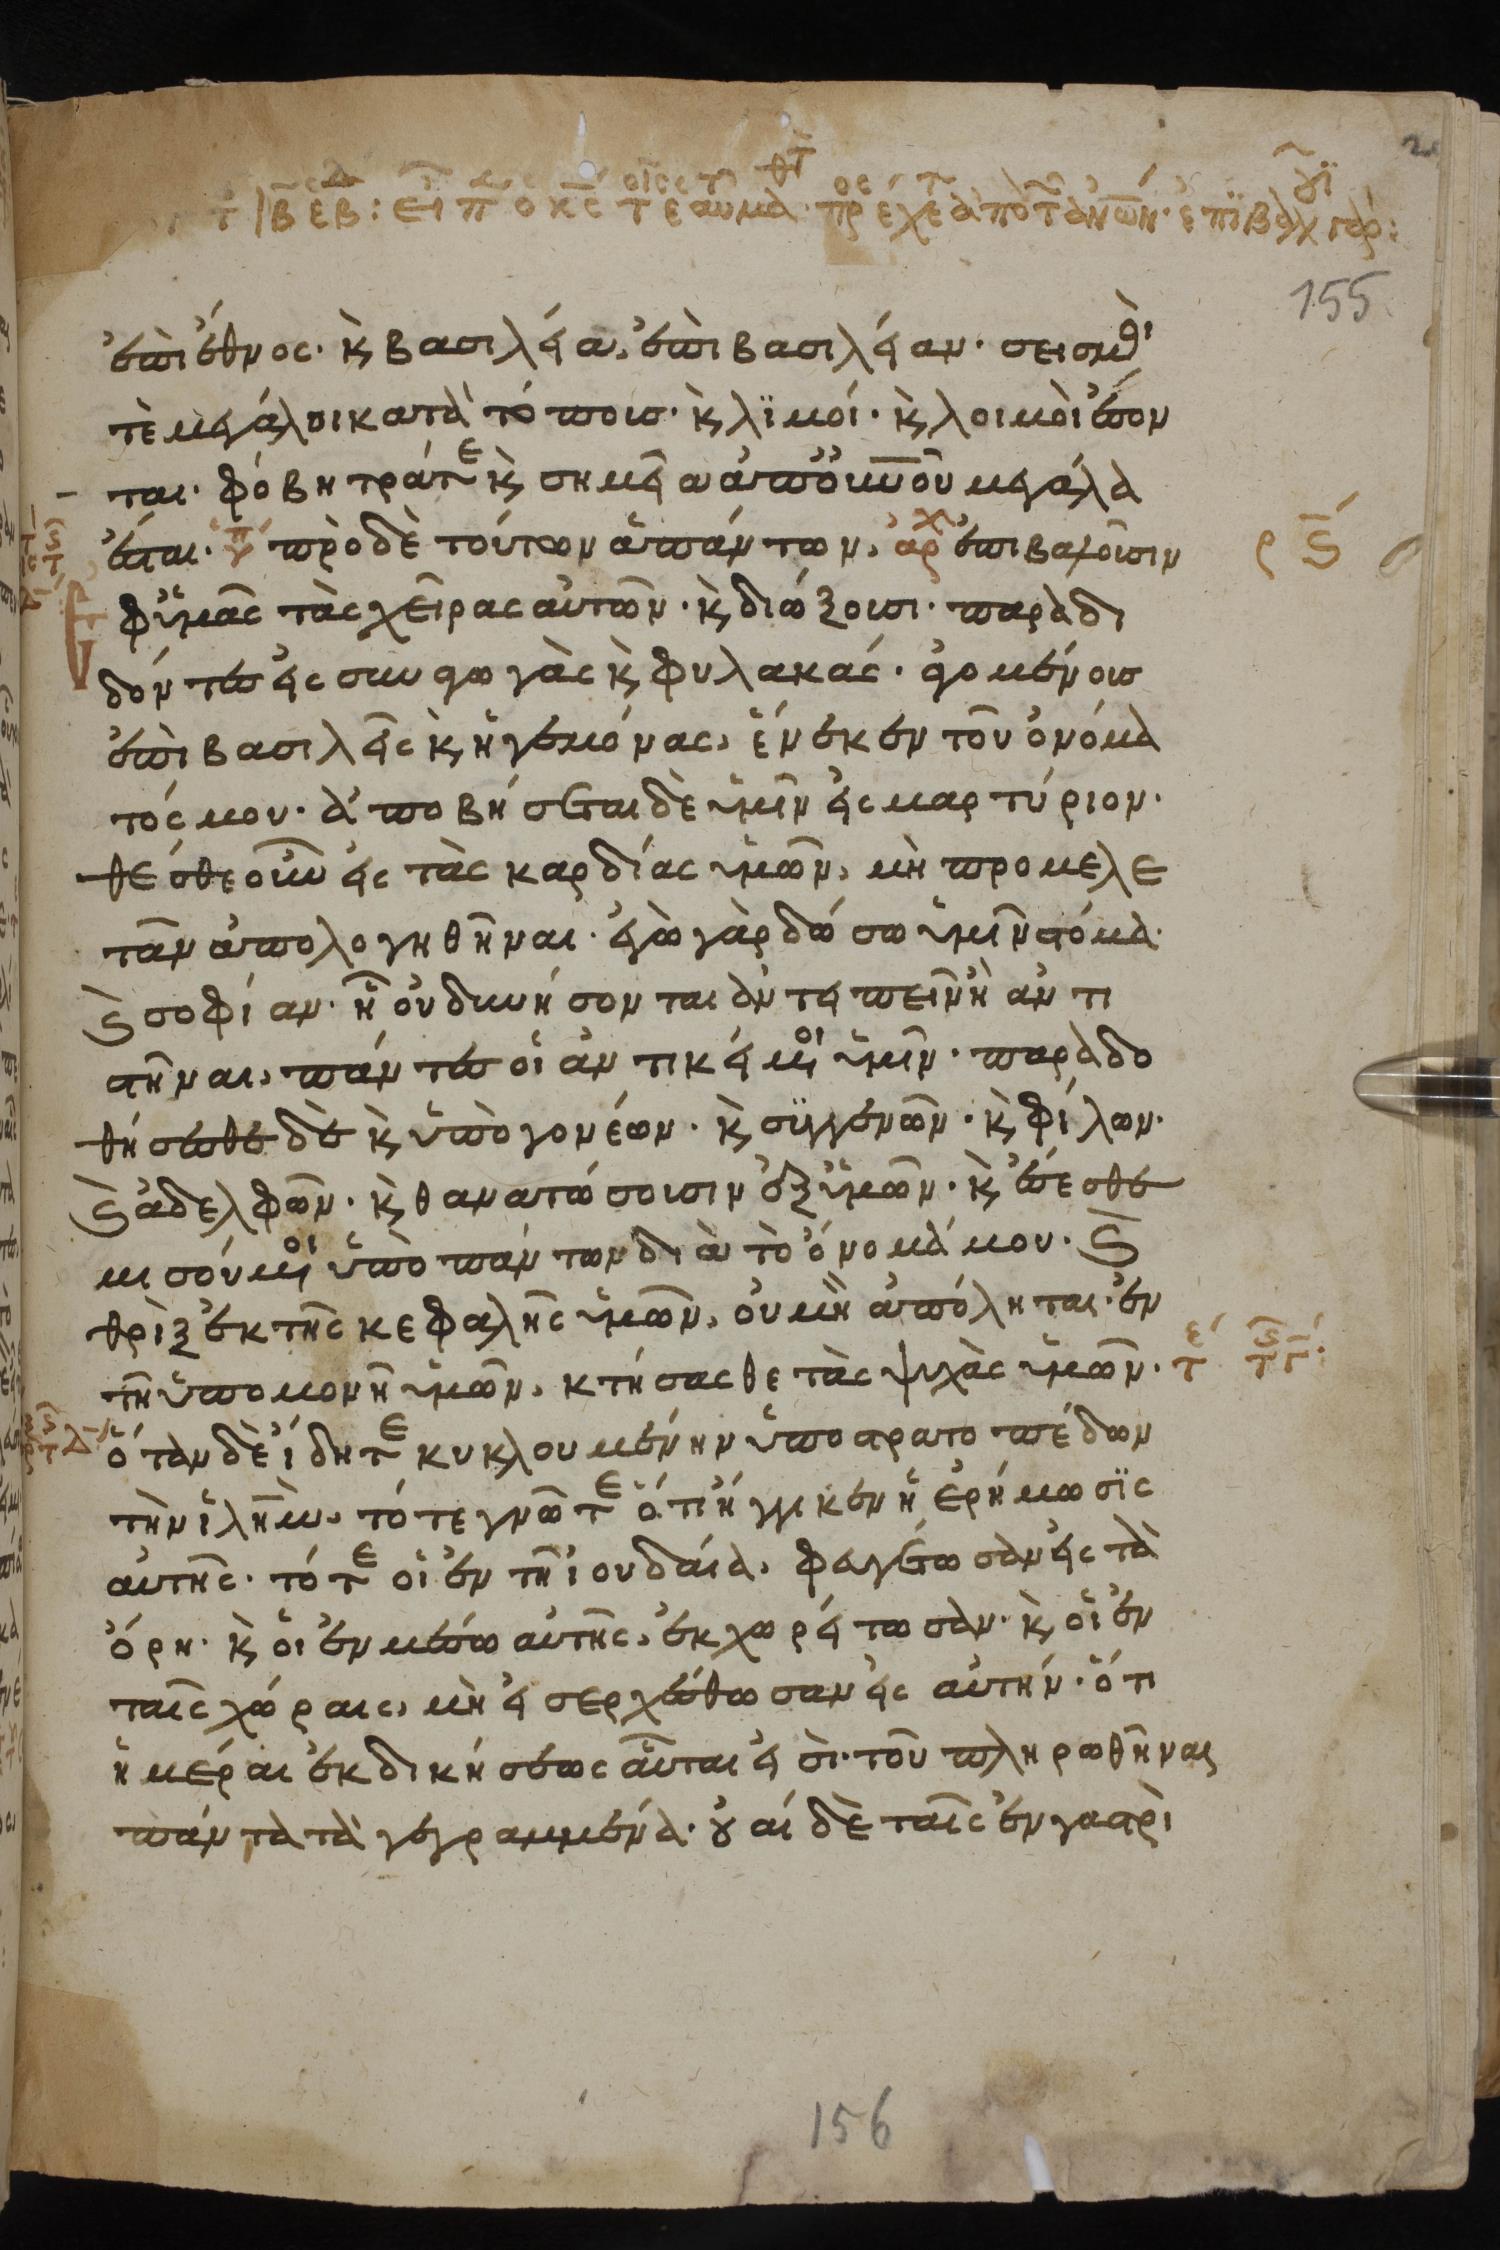 155
ἐπὶ ἔθνος· κ̀ βασιλεία, ἐπὶ βασιλείαν· σεισμοὶ
τὲ μεγάλοι κατὰ τόποις· κ̀ λϊμοί· κ̀ λοιμοὶ ἔσον
ται· φόβητρά τε κ̀ σημεῖα ἀπὸ οὐνοῦ μεγάλα
ἔσται· πρὸ δὲ τούτων ἁπάντων, ἐπιβαλοῦσιν
ἐφ ὑμᾶς τὰς χεῖρας αὐτῶν· κ̀ διώξουσι· παραδι
δόντες εἰς συναγωγὰς κ̀ φυλακάς· ἀγομένους
ἐπὶ βασιλεῖς κ̀ ἡγεμόνας, ἕνεκεν τοῦ ὀνόμα
τός μου· ἀποβήσεται δὲ ὑμῖν εἰς μαρτύριον·
θέσθε οὖν εἰς τὰς καρδίας ὑμῶν, μὴ προμελε
τᾶν ἀπολογηθῆναι· ἐγὼ γὰρ δώσω ὑμῖν στόμα·
κ̀ σοφίαν· ἧ οὐ δυνήσονται ἀντειπεῖν ἢ ἀντι
στῆναι, πάντες οἱ ἀντικείμενοι ὑμῖν· παραδο
θήσεσθε δὲ κ̀ ὑπὸ γονέων· κ̀ συγγενῶν· κ̀ φίλων·
κ̀ ἀδελφῶν· κ̀ θανατώσουσιν ἐξ ὑμῶν· κ̀ ἔσεσθε
μισούμενοι ὑπὸ πάντων διὰ τὸ ὄνομά μου· κ̀
θρὶξ ἐκ τῆς κεφαλῆς ὑμῶν, οὐ μὴ ἀπόληται· ἐν
τῆ ὑπομονῆ ὑμῶν, κτήσασθε τὰς ψυχὰς ὑμῶν·
ὅταν δὲ ἴδητε κυκλουμένην ὑπὸ στρατοπέδων
τὴν ἰλημ, τότε γνῶτε ὅτι ἤγγικεν ἡ ἐρήμωσϊς
αὐτῆς· τότε οἱ ἐν τῆ ἰουδαία, φευγέτωσαν εἰς τὰ
ὄρη· κ̀ οἱ ἐν μέσω αὐτῆς, ἐκχωρείτωσαν· κ̀ οἱ ἐν
ταῖς χώραις, μὴ εἰσερχέσθωσαν εἰς αὐτήν· ὅτι
ἡμέραι ἐκδικήσεως αὗταί εἰσι· τοῦ πληρωθῆναι
πάντα τὰ γεγραμμένα· οὐαί δὲ ταῖς ἐν γαστρὶ
156